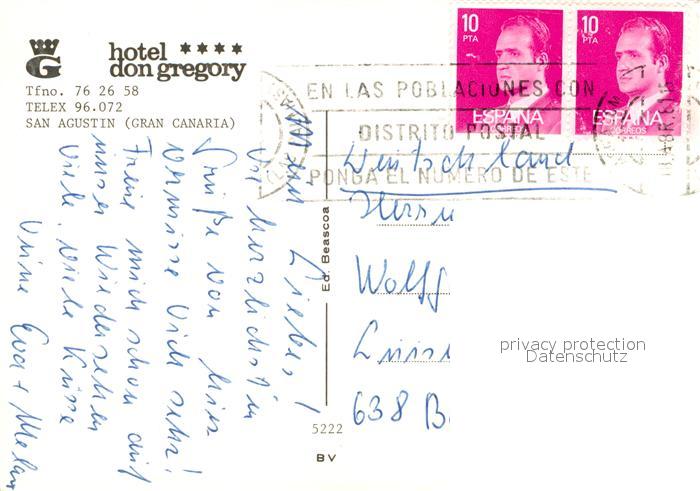 hotel ****
don gregory
G
Tfno. 76 26 58
TELEX 96.072
SAN AGUSTIN (GRAN CANARIA)
10
PTA
ESPAÑA
CORREOS
10
PTA
ESPAÑA
CORREOS
EN LAS POBLACIONES CON
DISTRITO POSTAL
PONGA EL NUMERO DE ESTE
Mein Liebes!
Die herzlichsten
Grüße von hier
vermisse Dich sehr!
Freue mich schon auf
unser Wiedersehen
Viele, viele Küsse
Deine Eva +
Ed. Beascoa
5222
BV
Deutschland
Herrn
Wolfg
638 B
privacy protection
Datenschutz